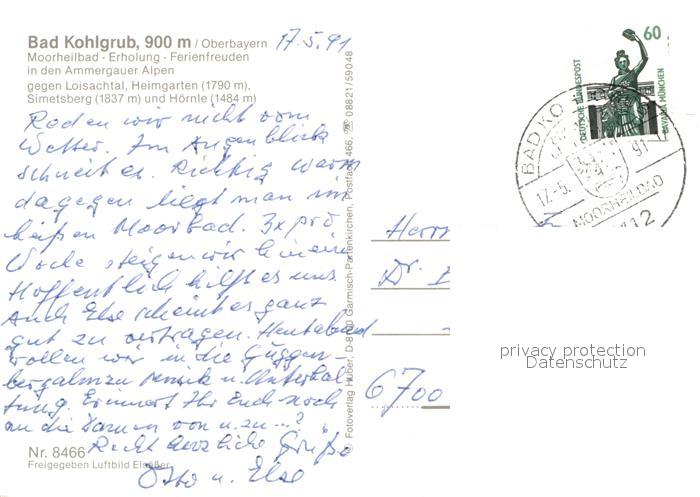 Bad Kohlgrub, 900 m / Oberbayern 17.5.91
Moorheilbad - Erholung - Ferienfreuden
in den Ammergauer Alpen
gegen Loisachtal, Heimgarten (1790 m),
Simetsberg (1837 m) und Hörnle (1484 m)
Reden wir nicht vom
Wetter. Im Augenblick
schneit es. Richtig warm
dagegen liegt man im
heißen Moorbad. 3x pro
Woche steigen wir hinein
Hoffentlich hilft es uns
Auch Else scheint es ganz
gut zu vertragen. Heut abend
wollen wir in die Guggen-
bergalm zu Musik u. Unterhal-
tung. Erinnert Ihr Euch noch
an die Damen von u. zu ...?
Recht herzliche Grüße
Otto u. Else
Nr. 8466
Freigegeben Luftbild Elsäßer
© Fotoverlag Huber, D-8100 Garmisch-Partenkirchen, Postfach 466, ☏ 08821/59048
60
DEUTSCHE BUNDESPOST
BAVARIA MÜNCHEN
BAD KO
17.-5. 91
MOORHEILBAD
12
Herrn
Dr.
6700
privacy protection
Datenschutz